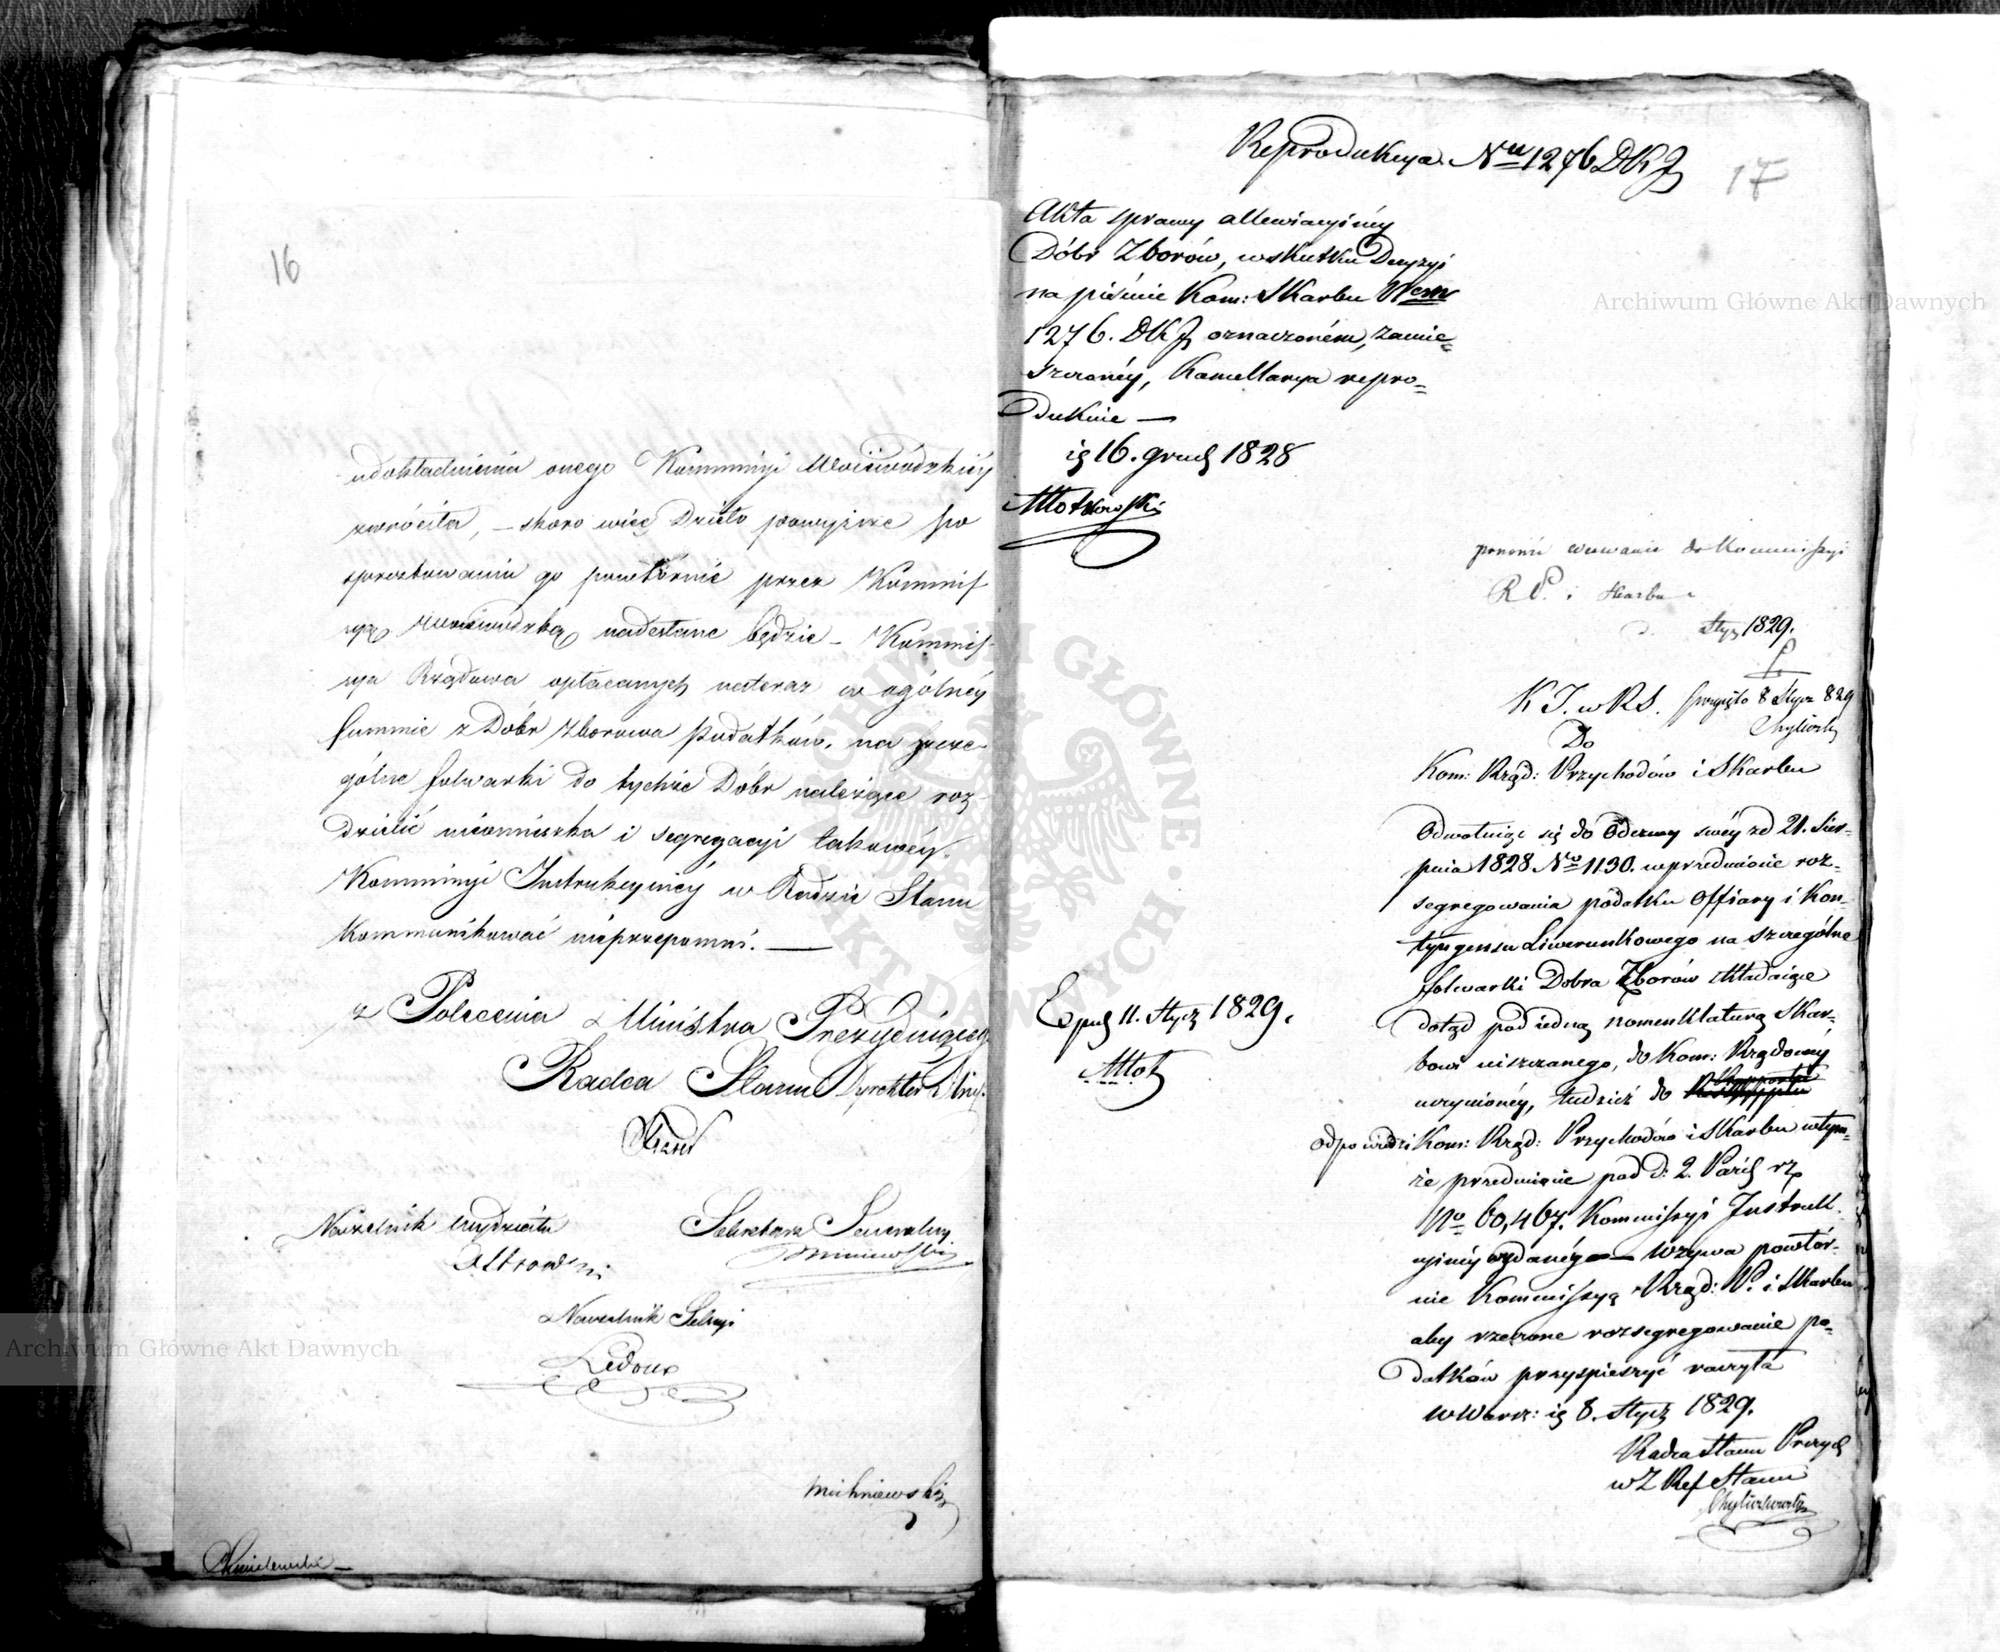 16
udokładnienia onego Kommissyi Woiewódzkiéy
zwróciła, – skoro więc Dzieło powyższe po
sprostowaniu go powtórnie przez Kommis
syą Woiewódzką nadesłane będzie – Kommis-
sya Rządowa opłacanych nateraz w ogólnéy
summie z Dóbr Zborowa podatków, na szcze-
gólne folwarki do tychże Dóbr należące roz-
dzielić nieomieszka i segregacyi takowéy
Kommissyi Instrukcyinéy w Radzie Stanu
kommunikować nieprzepomni. —
z Polecenia Ministra Prezyduiącego
Radca Stanu Dyrektor
Naczelnik Wydziału
Sekretarz Generalny
Naczelnik Sekcyi
Ledoux
Michniewski
Archiwum Główne Akt Dawnych
17
Reprodukcya Nru 1276 DKJ
Akta sprawy allewiacyinéy
Dóbr Zborów, wskutku Decyzyi
na piśmie Kom: Skarbu Nrem
1276. DKJ oznaczoném, zamie-
szczonéy, Kancellarya repro-
dukuie —
16. grud 1828
ponowić wezwanie do Kommissyi
R P. i Skarbu
d. Stycz 1829.
K J. w R S. przyięto 8 Stycz 829
Do
Kom: Rząd: Przychodów i Skarbu
Odwołuiąc się do Odezwy swéy zd 21. Sier-
pnia 1828 No 1130. w przedmiocie roz-
segregowania podatku Offiary i Kon-
tyngensu Liwerunkowego na szczególne
folwarki Dobra Zborów składaiące
dotąd pod iedną nomenklaturą Skar-
bowi uiszczanego, do Kom: Rządowéy
uczynionéy, tudzież do
odpowiedzi Kom: Rząd: Przychodów i Skarbu wtym-
że przedmiocie pod d: 2. Paźd rz
No 60,467. Kommissyi Instruk-
cyinéy wydanéy — wzywa powtór-
nie Kommissyą Rząd: P. i Skarbu
aby rzeczone rozsegregowanie po-
datków przyspieszyć raczyła
w Warsz: 8. Stycz 1829.
Radca Stanu Prezyd
w Z Ref Stanu
Exped 11. Stycz 1829.
Młot
Archiwum Główne Akt Dawnych
ARCHIWUM GŁÓWNE AKT DAWNYCH